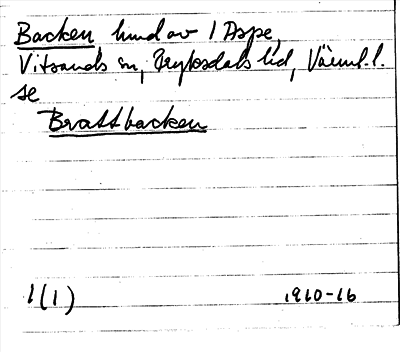 Backen, hmd av 1 Aspe,
Vitsands sn, Fryksdals hd, Värml. l.
se
Brattbacken
1(1) 1910-16